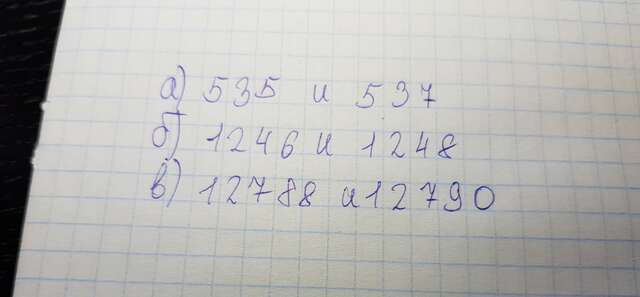 а) 535 и 537
б) 1246 и 1248
в) 12788 и 12790